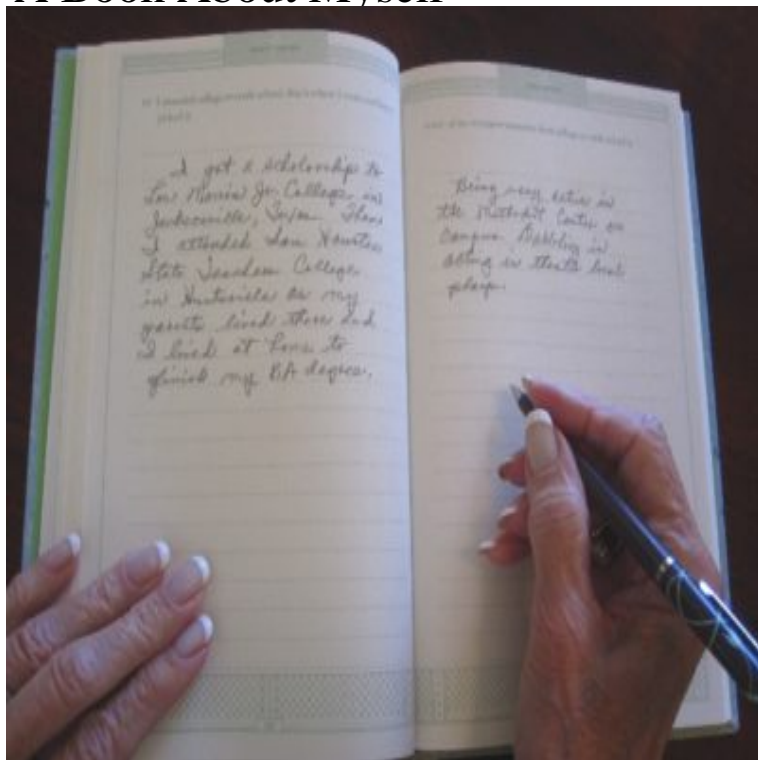 A Book About Myself
I got a scholarship to
Lon Morris Jr. College in
Jacksonville, Texas. Then
I attended Sam Houston
State Teachers College
in Huntsville as my
parents lived there and
I lived at home to
finish my BA degree.
Being very active in
the Methodist Center on
campus. Dabbling in
acting in theatre
plays.